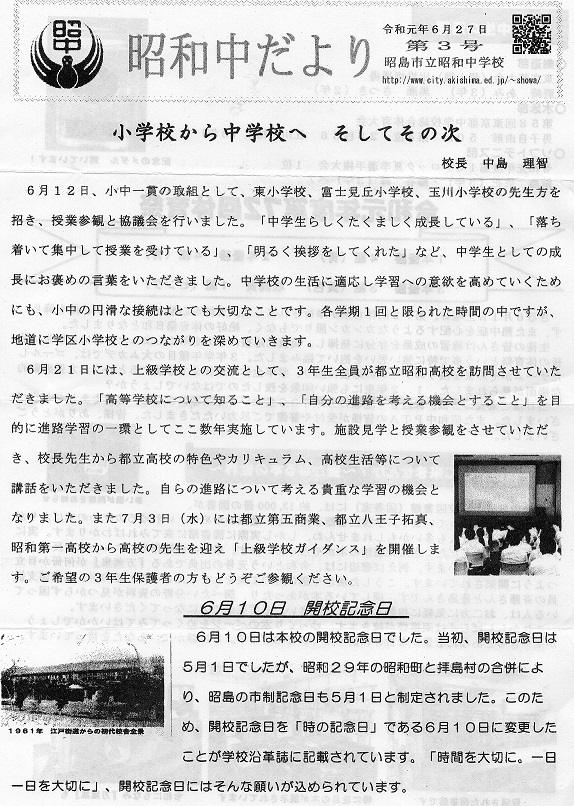 昭中
昭和中だより
令和元年6月27日
第3号
昭島市立昭和中学校
http://www.city.akishima.ed.jp/~showa/
小学校から中学校へ　そしてその次
校長　中島　理智
6月12日、小中一貫の取組として、東小学校、富士見丘小学校、玉川小学校の先生方を
招き、授業参観と協議会を行いました。「中学生らしくたくましく成長している」、「落ち
着いて集中して授業を受けている」、「明るく挨拶をしてくれた」など、中学生としての成
長にお褒めの言葉をいただきました。中学校の生活に適応し学習への意欲を高めていくため
にも、小中の円滑な接続はとても大切なことです。各学期1回と限られた時間の中ですが、
地道に学区小学校とのつながりを深めていきます。
6月21日には、上級学校との交流として、3年生全員が都立昭和高校を訪問させていた
だきました。「高等学校について知ること」、「自分の進路を考える機会とすること」を目
的に進路学習の一環としてここ数年実施しています。施設見学と授業参観をさせていただ
き、校長先生から都立高校の特色やカリキュラム、高校生活等について
講話をいただきました。自らの進路について考える貴重な学習の機会と
なりました。また7月3日（水）には都立第五商業、都立八王子拓真、
昭和第一高校から高校の先生を迎え「上級学校ガイダンス」を開催しま
す。ご希望の3年生保護者の方もどうぞご参観ください。
6月10日　開校記念日
6月10日は本校の開校記念日でした。当初、開校記念日は
5月1日でしたが、昭和29年の昭和町と拝島村の合併によ
り、昭島の市制記念日も5月1日と制定されました。このた
め、開校記念日を「時の記念日」である6月10日に変更した
ことが学校沿革誌に記載されています。「時間を大切に。一日
一日を大切に」、開校記念日にはそんな願いが込められています。
1961年　江戸街道からの初代校舎全景